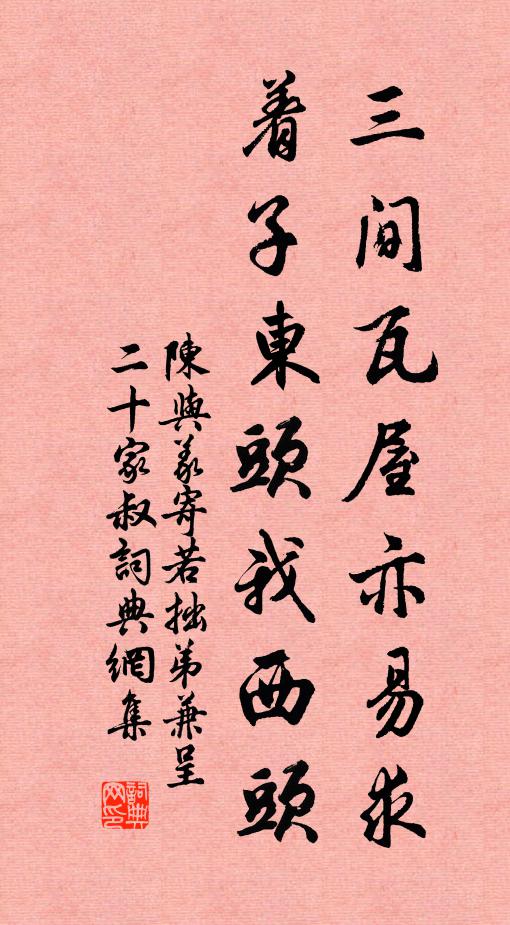 三间瓦屋亦易求
着子東頭我西頭
陳與義寄若拙弟兼呈
二十家叔詞典網集
詞典网印